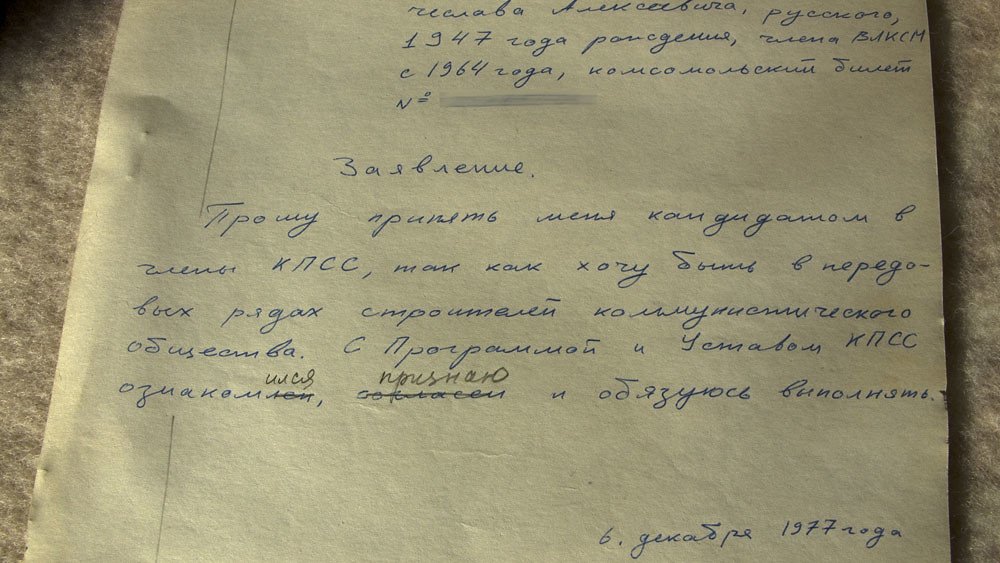 чеслава Алексеевича, русского,
1947 года рождения, члена ВЛКСМ
с 1964 года, комсомольский билет
№
Заявление.
Прошу принять меня кандидатом в
члены КПСС, так как хочу быть в передо-
вых рядах строителей коммунистического
общества. С Программой и Уставом КПСС
илися признаю
ознакомлен, согласен и обязуюсь выполнять.
6. декабря 1977 года